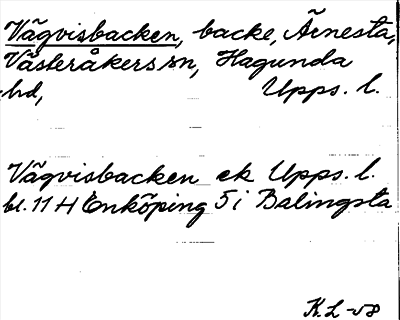 Vägvisbacken, backe, Ärnesta,
Västeråkers sn, Hagunda
hd, Upps. l.
Vägvisbacken ek Upps. l.
bl. 11 H Enköping 5 i Balingsta
K. L -58